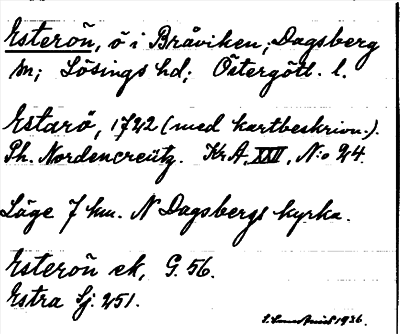 Esterön, ö i Bråviken; Dagsberg
sn; Lösings hd; Östergötl. l.
Estarö, 1722 (med kartbeskrivn.).
Ph. Nordencreutz. KrA, XXI, N:o 24.
Läge 7 km. N Dagsbergs kyrka.
Esterön ek, G. 56.
Estra Sj. 251.
1936.